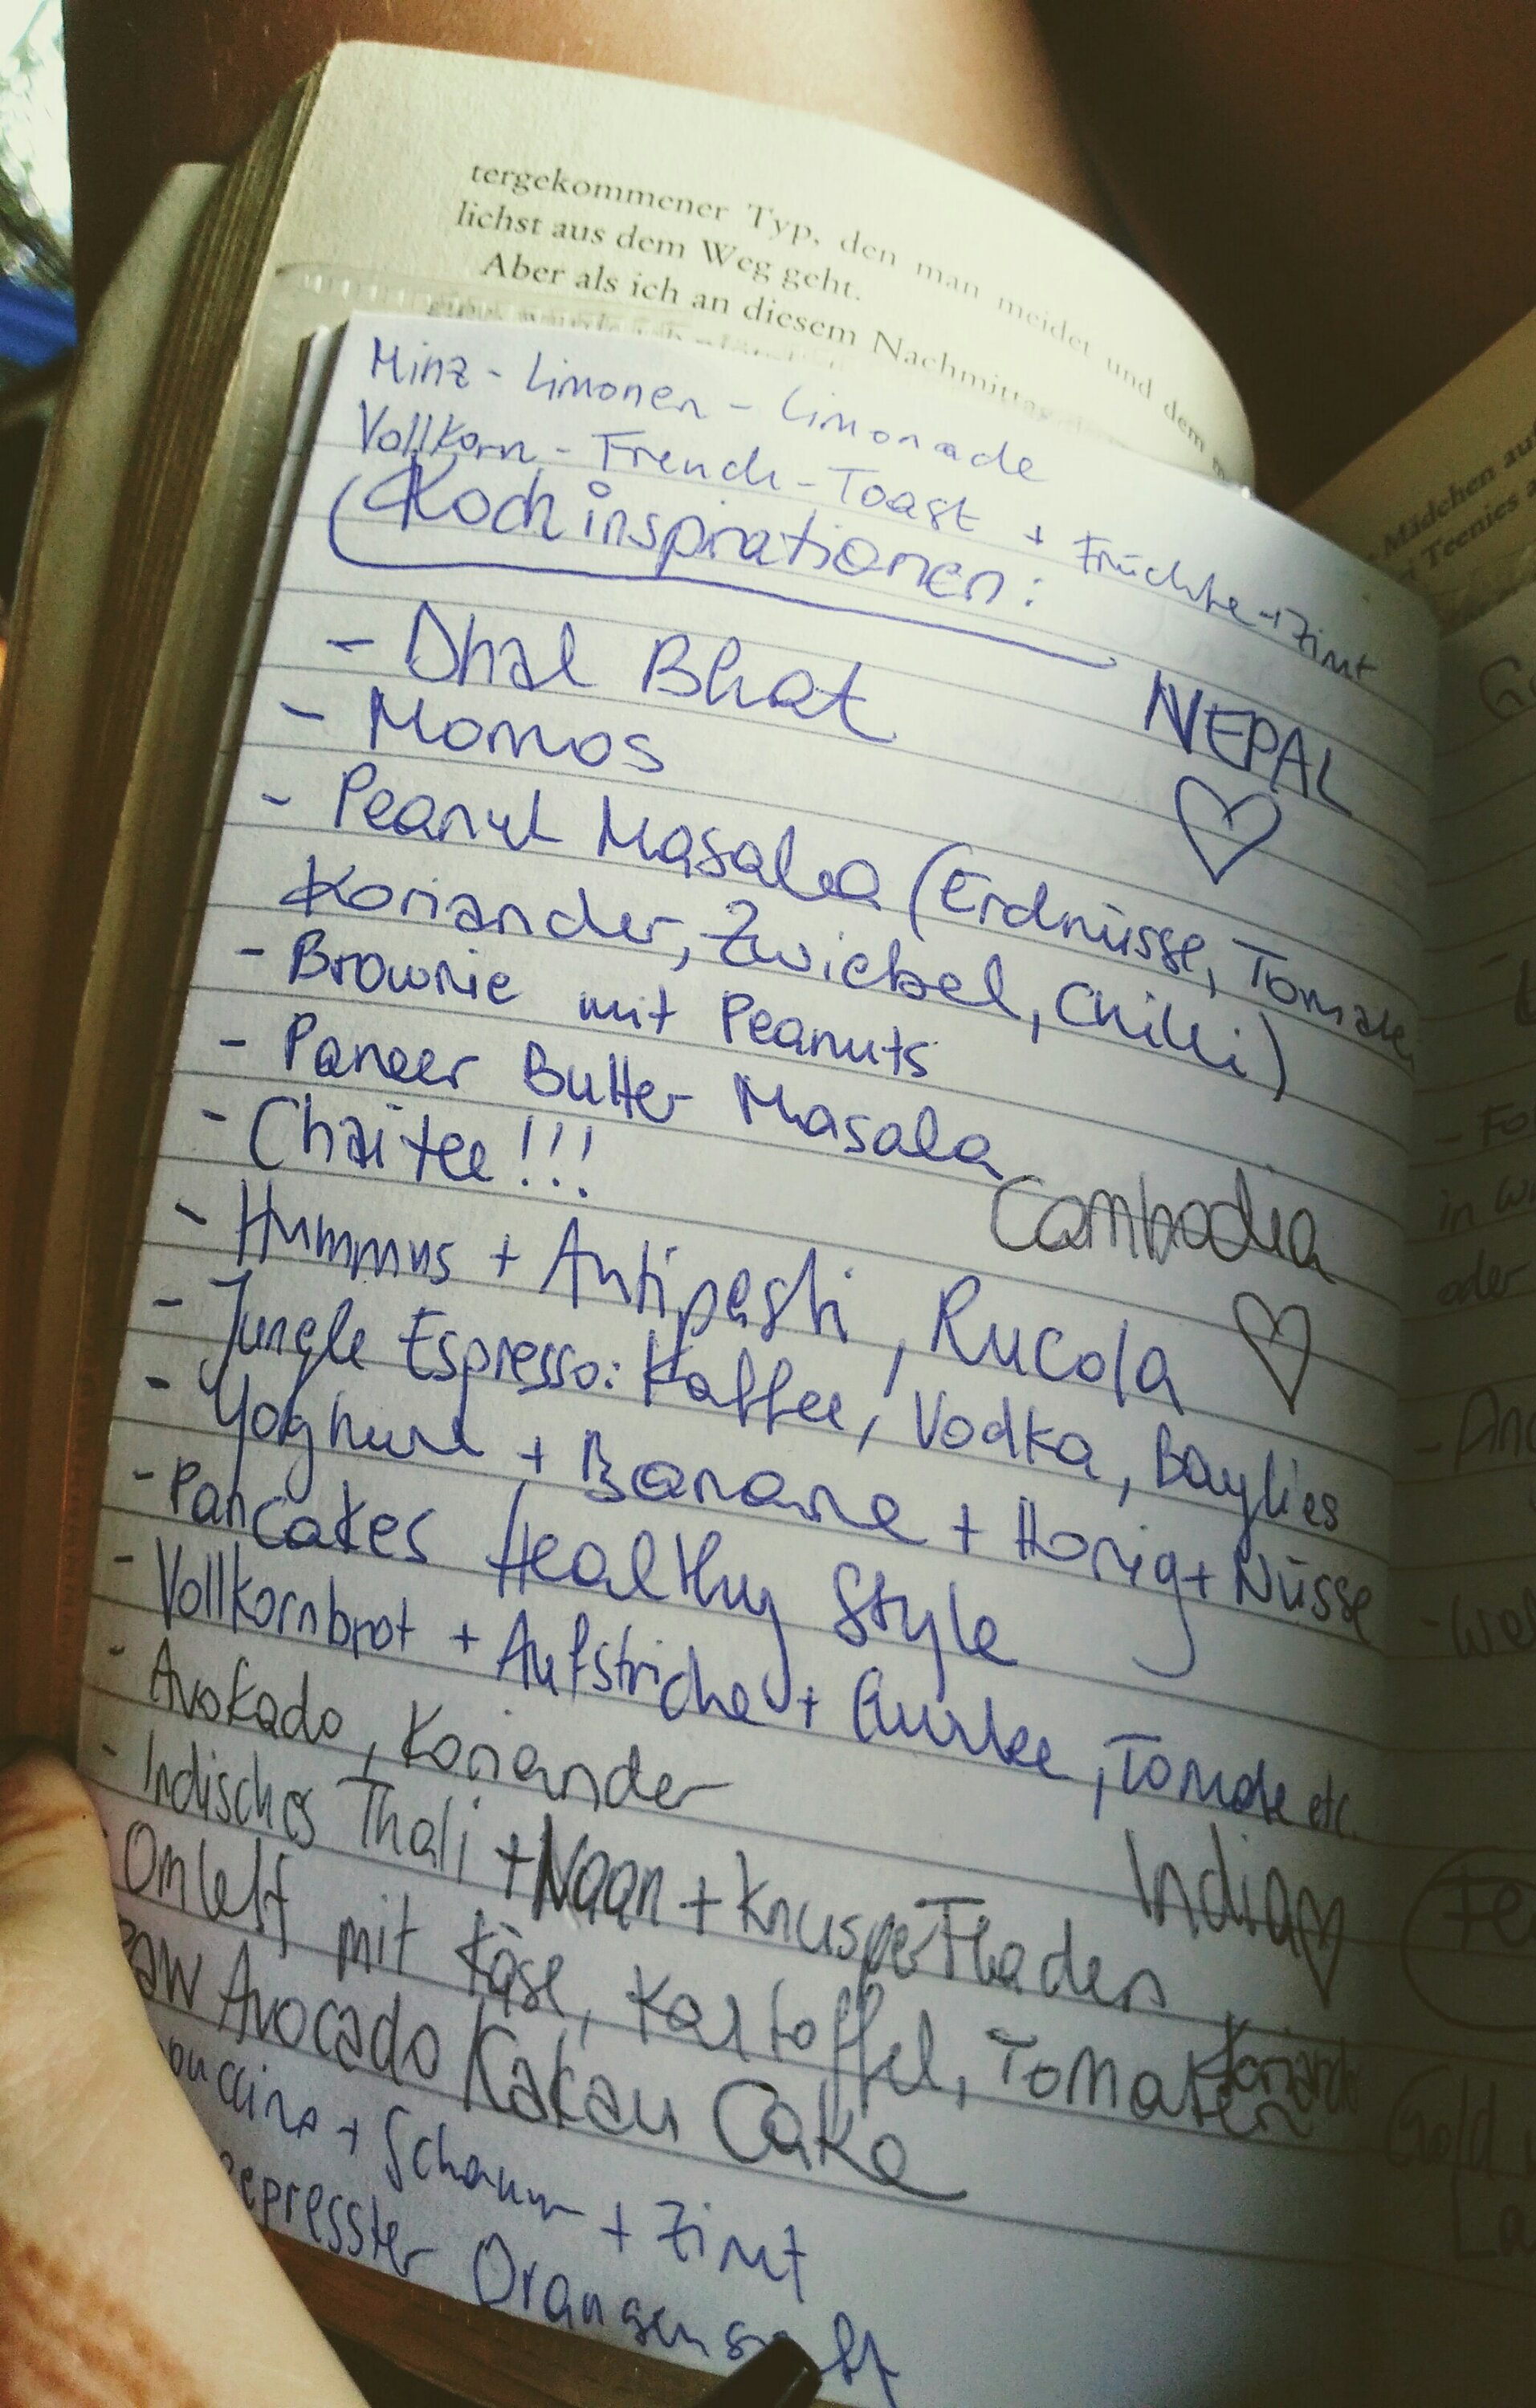 tergekommener Typ, den man meidet und dem m
lichst aus dem Weg geht.
Aber als ich an diesem Nachmittag
Minz - Limonen - Limonade
Vollkorn - French - Toast + Früchte + Zimt
Kochinspirationen:
- Dhal Bhat
NEPAL
- Momos
- Peanut Masala (Erdnüsse, Tomate,
Koriander, Zwiebel, Chilli)
- Brownie mit Peanuts
- Paneer Butter Masala
- Chaitee!!!
Cambodia
- Hummus + Antipasti, Rucola
- Jungle Espresso: Kaffee, Vodka, Baylies
- Yoghurt + Banane + Honig + Nüsse
- Pancakes Healthy Style
- Vollkornbrot + Aufstriche + Gurke, Tomate etc.
- Avokado, Koriander
India
- Indisches Thali + Naan + Knusper Fladen
Omlett mit Käse, Kartoffel, Tomaten
Raw Avocado Kakau Cake
uccino + Schaum + Zimt
gepresster Orangensaft
Mädchen au
Teenies
- Fo
in w
oder
- An
- We
Fe
Gold
La